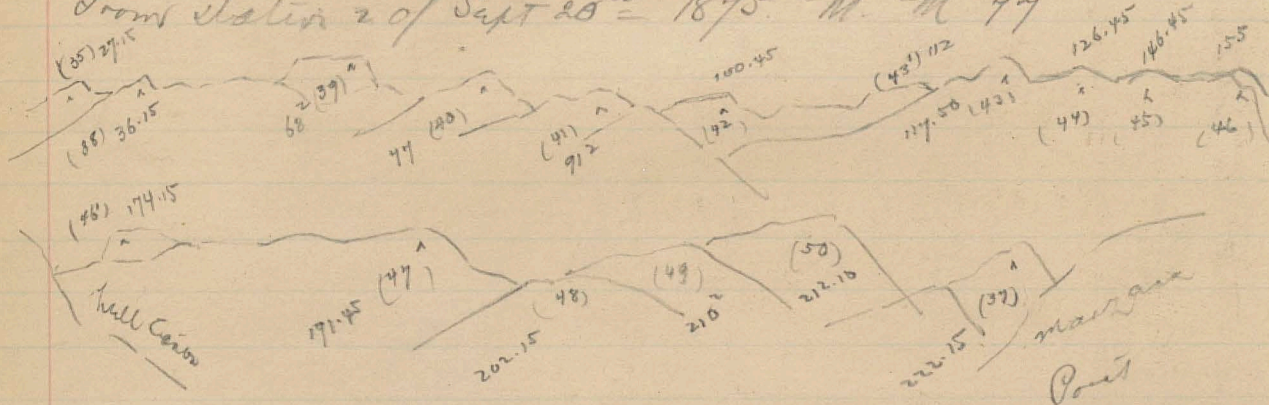 From Station 2 of Sept 20 = 1875. M. M 77
(35) 27.15
(38) 36.15
68² (39)
77 (40)
(41) 91²
100.45
(42)
(43') 112
117.50 (43)
126.45
(44)
146.45
45)
155
(46)
(46') 174.15
Hell Cañon
191.45 (47)
202.15 (48)
(49) 210²
(50) 212.10
222.15 (37)
Point